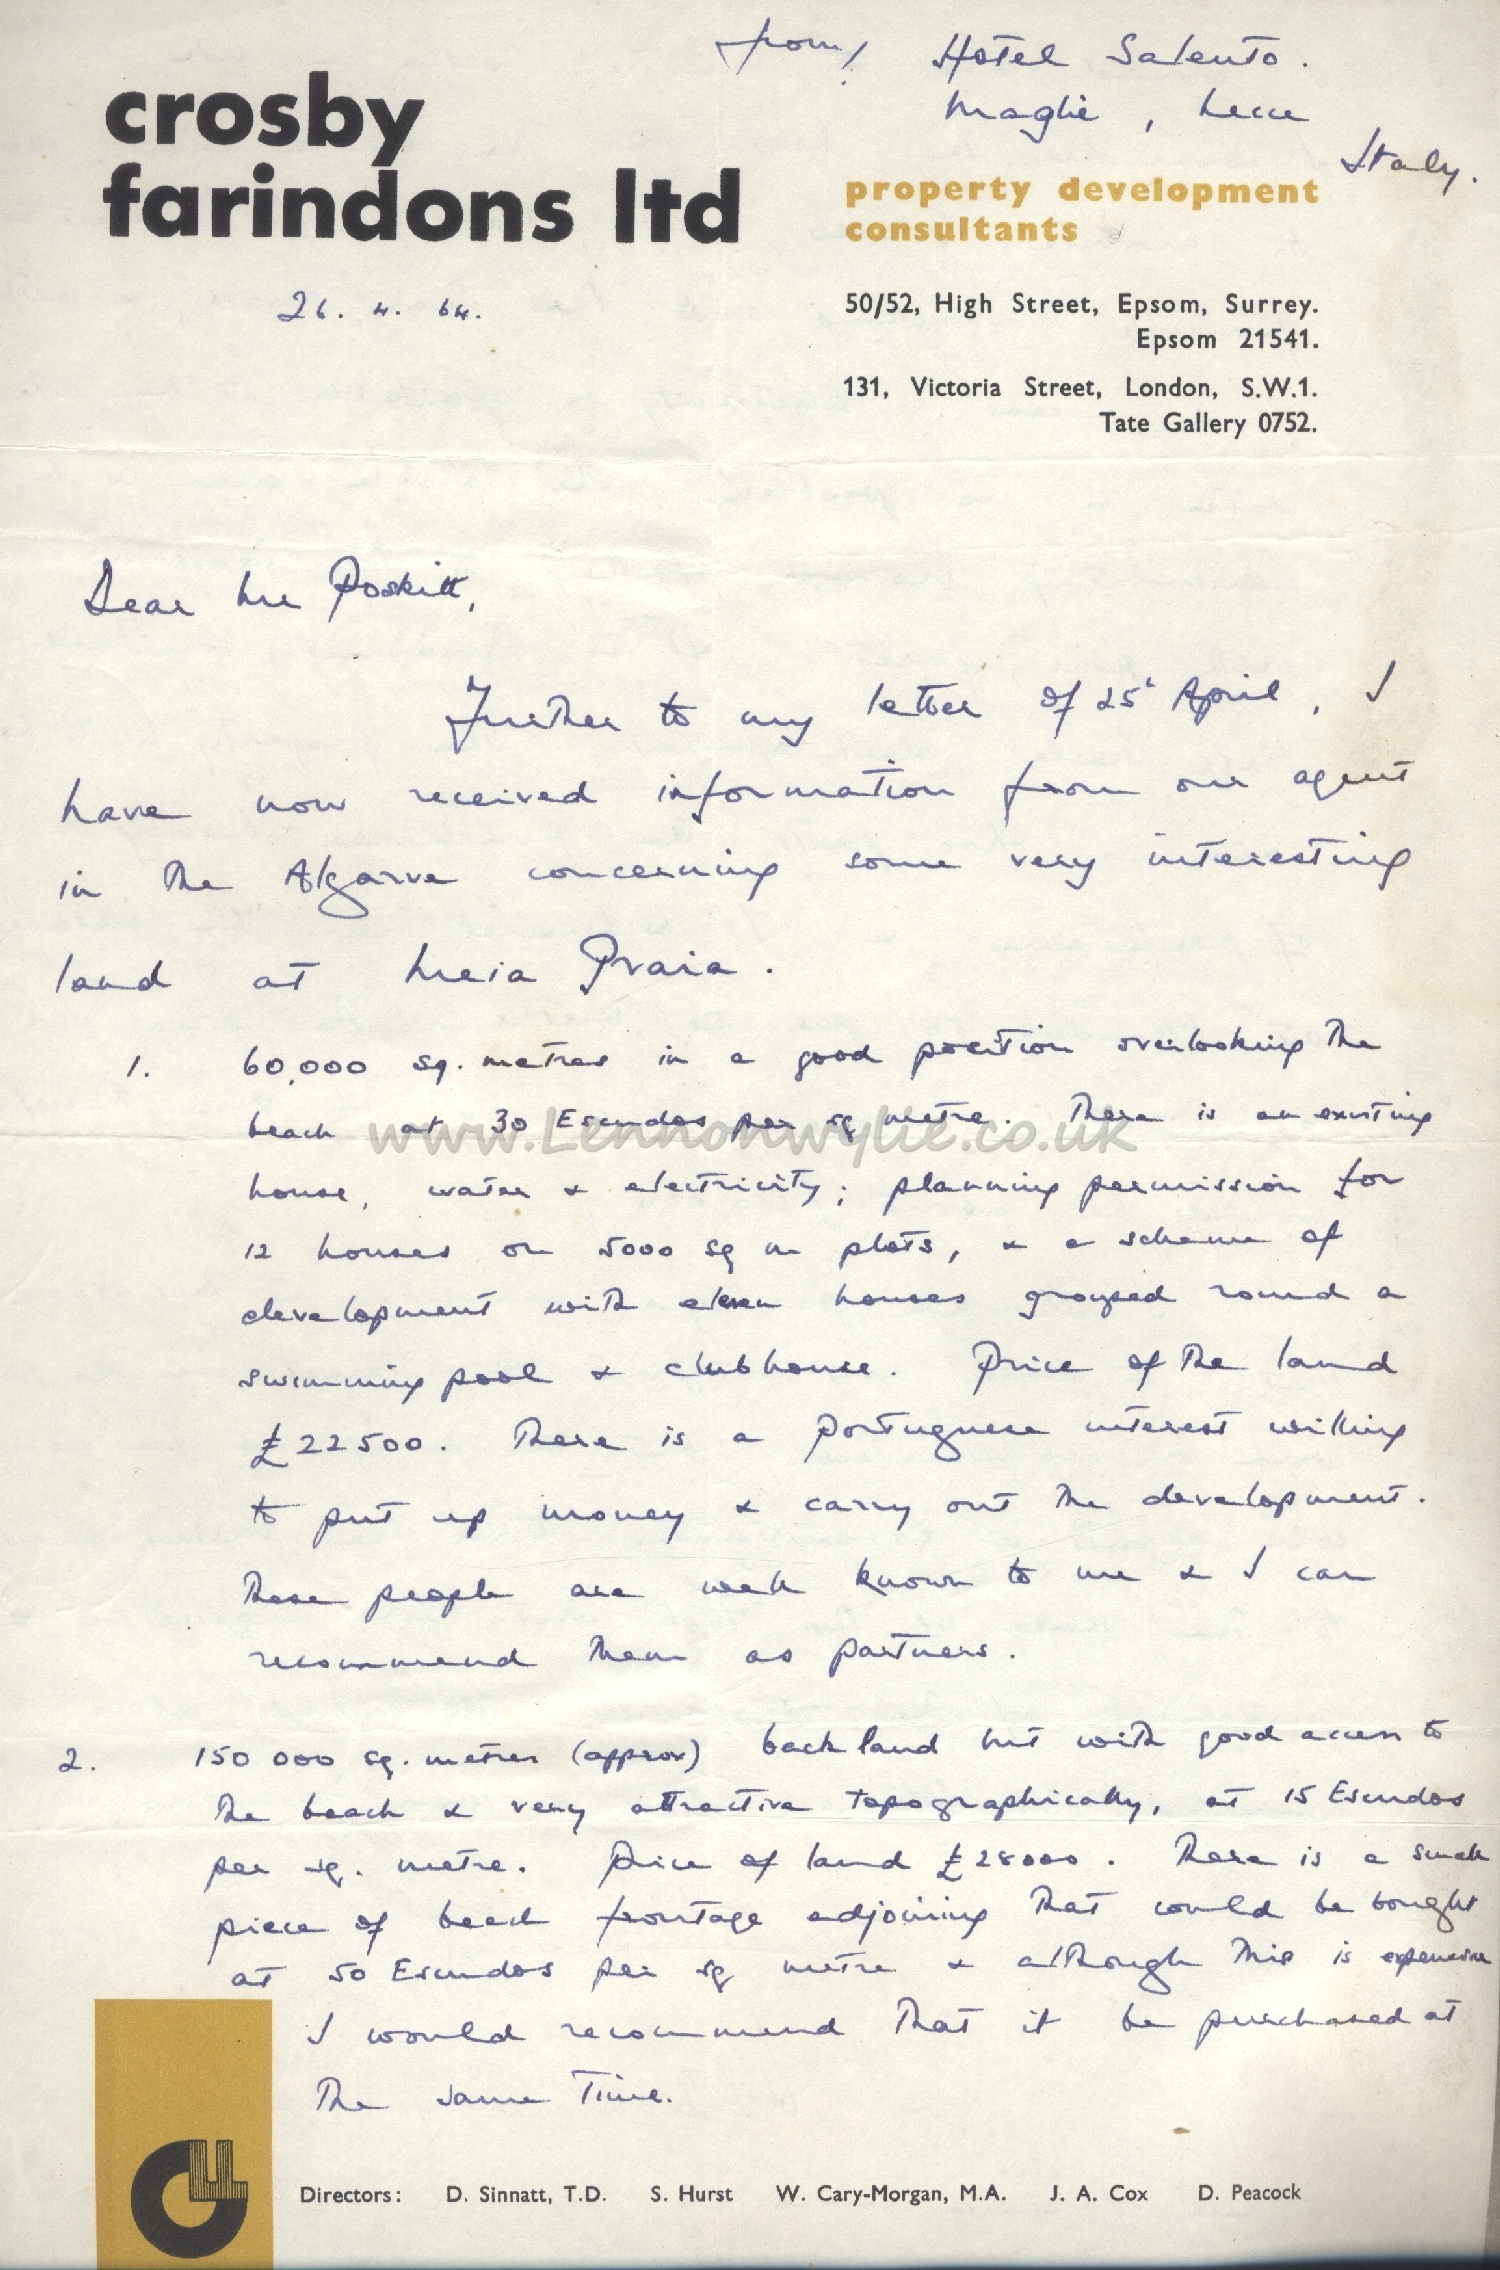 from, Hotel Salento.
Maglie, Lecce
Italy.
crosby
farindons ltd
property development
consultants
26. 4. 64.
50/52, High Street, Epsom, Surrey.
Epsom 21541.
131, Victoria Street, London, S.W.1.
Tate Gallery 0752.
Dear Mr Poskitt,
Further to my letter of 25' April, I
have now received information from our agent
in the Algarve concerning some very interesting
land at Meia Praia.
1. 60,000 sq. metres in a good position overlooking the
beach at 30 Escudos per sq metre. There is an existing
house, water & electricity; planning permission for
12 houses on 5000 sq m plots, & a scheme of
development with eleven houses grouped round a
swimming pool & clubhouse. Price of the land
£22500. There is a Portuguese interest willing
to put up money & carry out the development.
These people are well known to me & I can
recommend them as partners.
2. 150 000 sq. metres (approx) back land but with good access to
the beach & very attractive topographically, at 15 Escudos
per sq. metre. Price of land £28000. There is a small
piece of beach frontage adjoining that could be bought
at 50 Escudos per sq metre & although this is expensive
I would recommend that it be purchased at
the same time.
www.Lennonwylie.co.uk
Directors: D. Sinnatt, T.D. S. Hurst W. Cary-Morgan, M.A. J. A. Cox D. Peacock